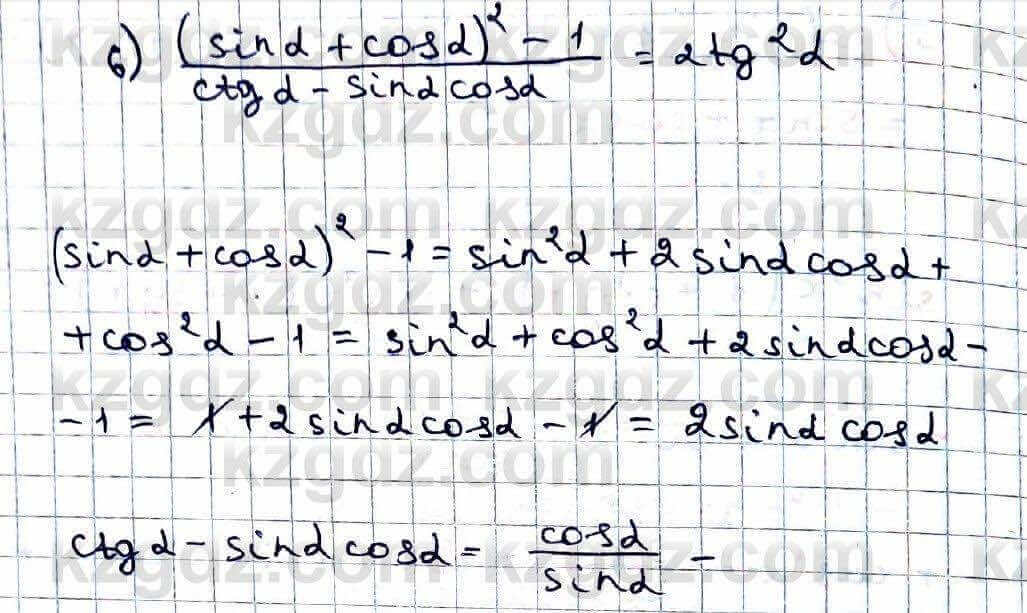 б) (sinα + cosα)² - 1 / ctgα - sinα cosα = 2tg²α
(sinα + cosα)² - 1 = sin²α + 2 sinα cosα +
+ cos²α - 1 = sin²α + cos²α + 2 sinα cosα -
- 1 = 1 + 2 sinα cosα - 1 = 2 sinα cosα
ctgα - sinα cosα = cosα / sinα -
kzgdz.com